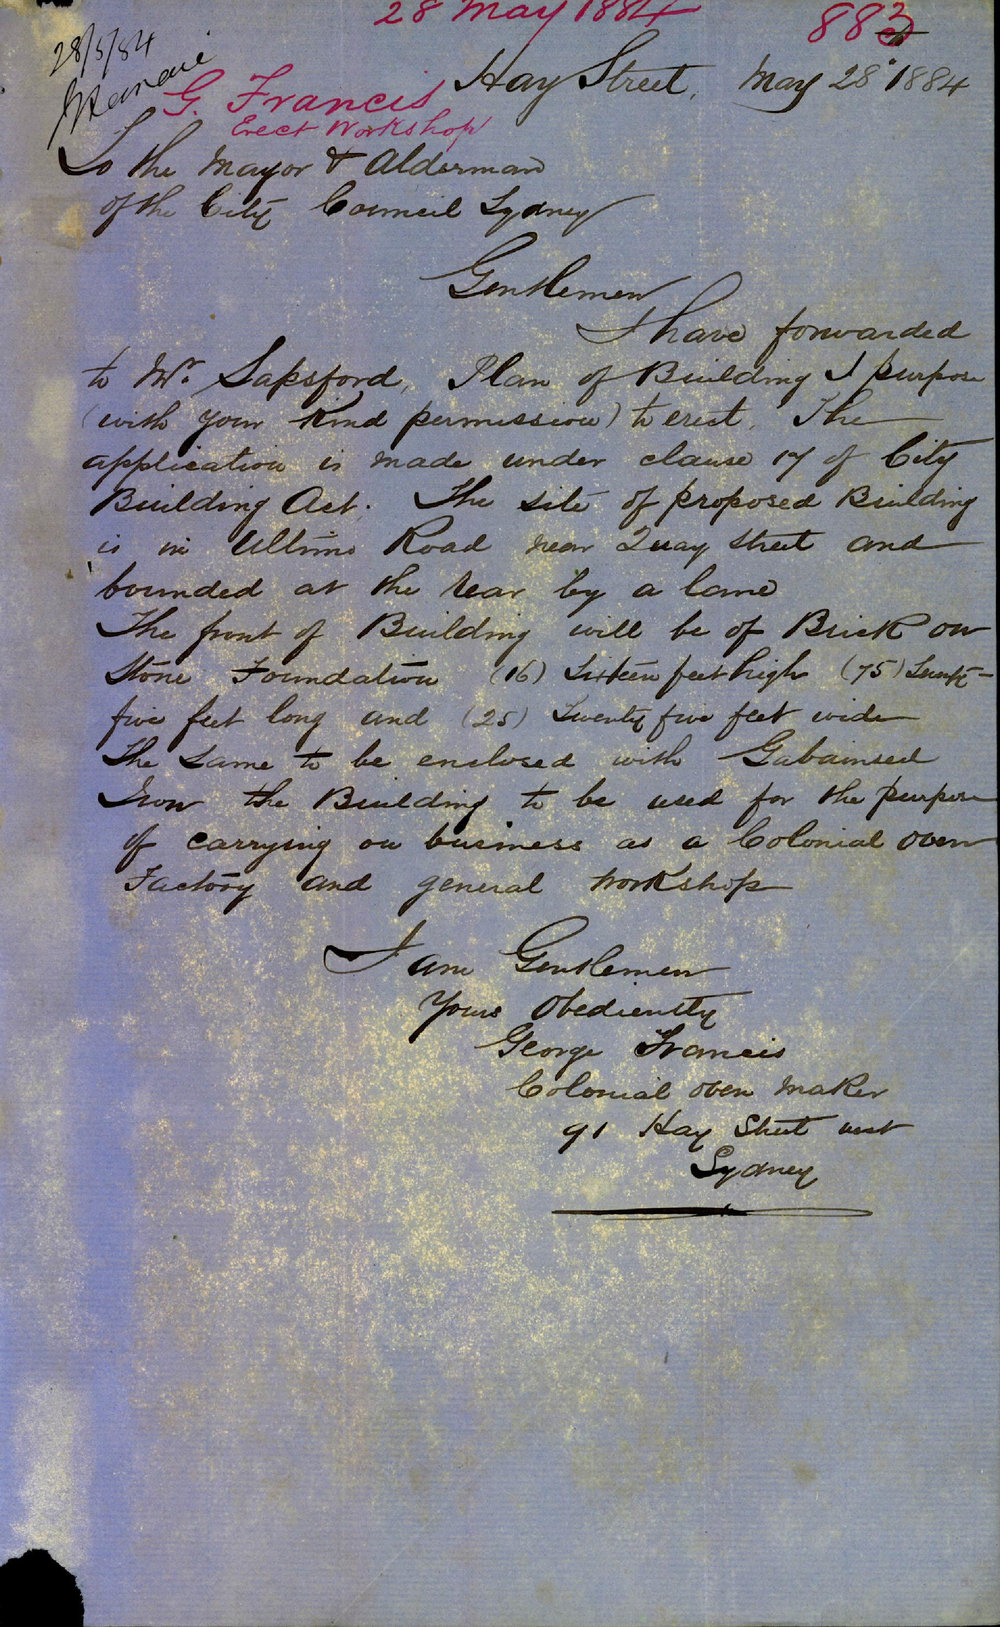 28 May 1884
883
28/5/84
Hay Street, May 28 1884
G. Francis
Erect Workshop
To the Mayor & Alderman
of the City Council Sydney
Gentlemen
I have forwarded
to Mr. Sapsford, Plan of Building I purpose
(with your kind permission) to erect. The
application is made under clause 17 of City
Building Act. The site of proposed Building
is in Ultimo Road near Quay Street and
bounded at the rear by a lane
The front of Building will be of Brick on
Stone Foundation (16) Sixteen feet high (75) Seventy
five feet long and (25) Twenty five feet wide
The same to be enclosed with Galvanised
Iron the Building to be used for the purpose
of carrying on business as a Colonial Oven
Factory and general workshop
I am Gentlemen
Yours Obediently
George Francis
Colonial Oven Maker
91 Hay Street west
Sydney